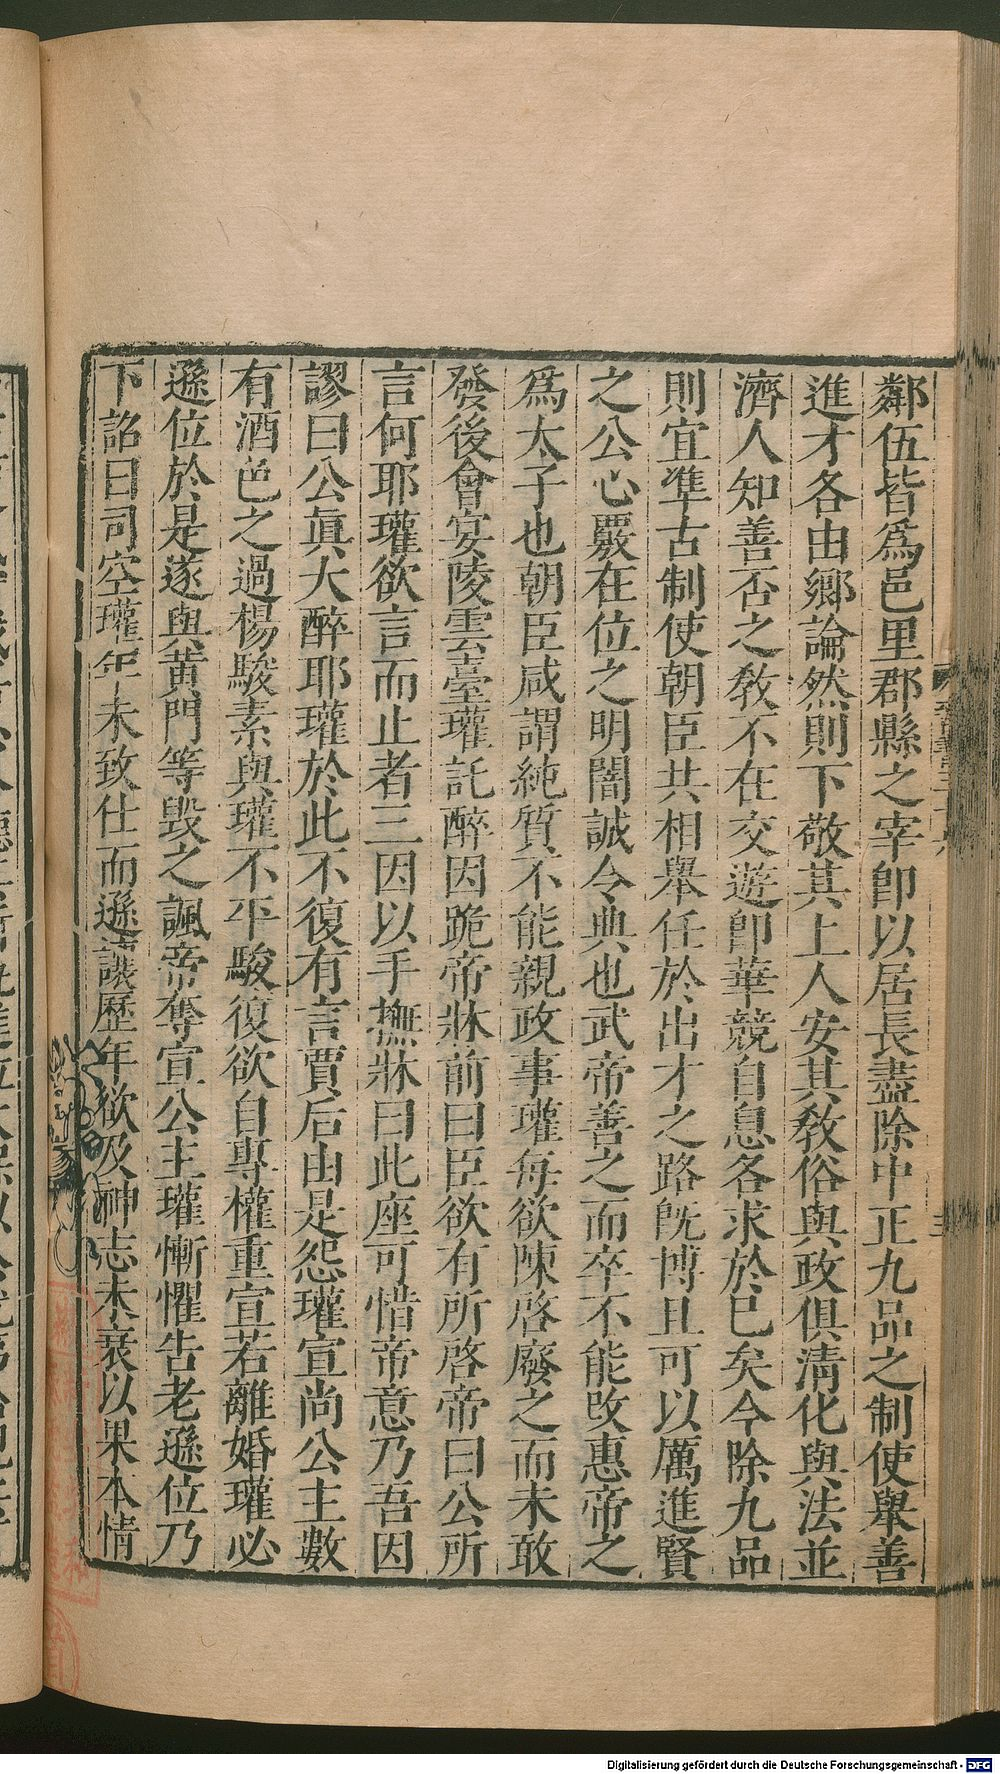 鄰伍皆爲邑里郡縣之宰卽以居長盡除中正九品之制使舉善
進才各由鄉論然則下敬其上人安其敎俗與政俱淸化與法並
濟人知善否之敎不在交遊卽華競自息各求於已矣今除九品
則宜準古制使朝臣共相舉任於出才之路旣博且可以厲進賢
之公心覈在位之明闇誠令典也武帝善之而卒不能改惠帝之
爲太子也朝臣咸謂純質不能親政事瓘每欲陳啓廢之而未敢
發後會宴陵雲臺瓘託醉因跪帝牀前曰臣欲有所啓帝曰公所
言何耶瓘欲言而止者三因以手撫牀曰此座可惜帝意乃吾因
謬曰公眞大醉耶瓘於此不復有言賈后由是怨瓘宣尚公主數
有酒色之過楊駿素與瓘不平駿復欲自專權重宣若離婚瓘必
遜位於是遂與黃門等毀之諷帝奪宣公主瓘慚懼告老遜位乃
下詔曰司空瓘年未致仕而遜讓歷年欲及神志未衰以果本情
Digitalisierung gefördert durch die Deutsche Forschungsgemeinschaft - DFG